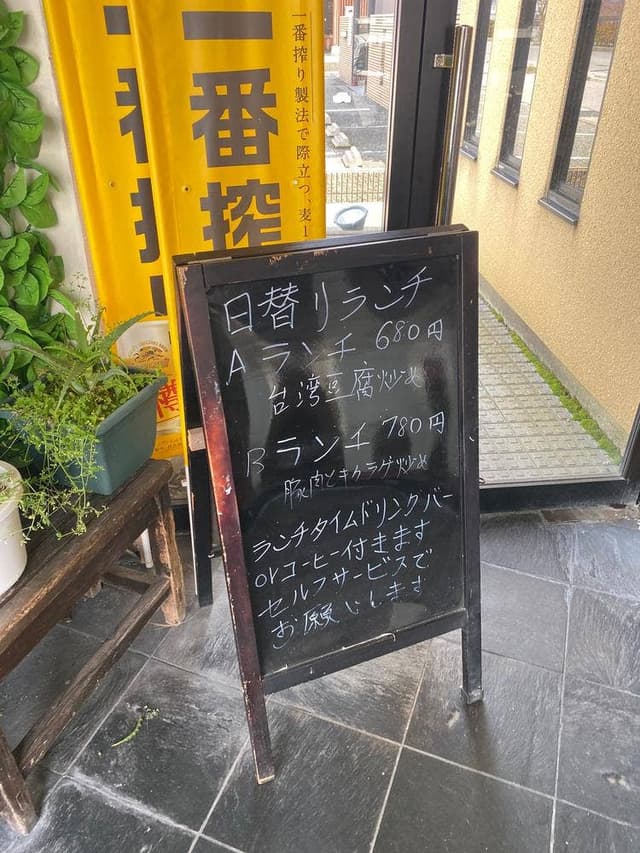 一番搾り製法で際立つ、麦1
一番搾
一番搾
日替りランチ
Aランチ 680円
台湾豆腐炒め
Bランチ 780円
豚肉とキクラゲ炒め
ランチタイムドリンクバー
orコーヒー付きます
セルフサービスで
お願いします